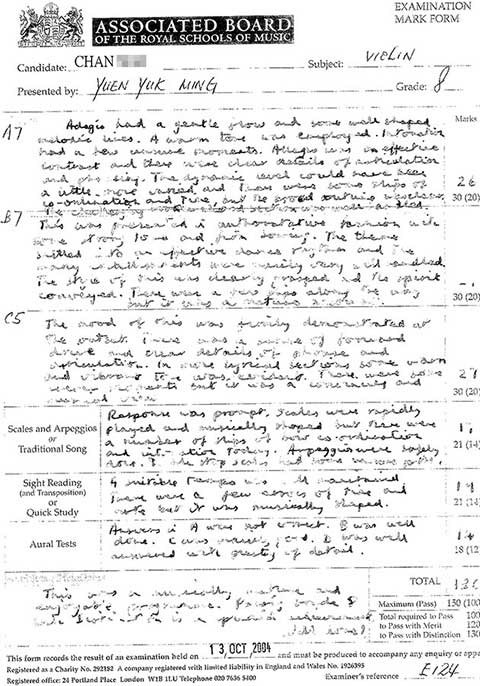 EXAMINATION
MARK FORM
ASSOCIATED BOARD
OF THE ROYAL SCHOOLS OF MUSIC
Candidate: CHAN
Subject: VIOLIN
Presented by: YUEN YUK MING
Grade: 8
Marks
A7
Adagio had a gentle flow and some well shaped
melodic lines. A warm tone was employed. Intonation
had a few unsure moments. Allegro was an effective
contrast and there were clear details of articulation
and phrasing. The dynamic level could have been
a little more varied and there were some slips of
co-ordination and time, but
26
30 (20)
B7
This was presented in authoritative fashion with
some strong tone and firm bowing. The theme
settled into an effective dance rhythm and the
many embellishments were mainly very well handled.
The style of this was clearly grasped and the spirit
conveyed. There were a few slips along the way
but it was a mature
30 (20)
C5
The mood of this was firmly demonstrated at
the outset. There was a sense of forward
drive and clear details of phrase and
articulation. In more lyrical sections some warm
and vibrant tone was evident. There were some
but it was a convincing and
musical view
27
30 (20)
Scales and Arpeggios
or
Traditional Song
Response was prompt. Scales were rapidly
played and musically shaped but there were
a number of slips of bow co-ordination
and intonation today. Arpeggios were safely
done.
21 (14)
Sight Reading
(and Transposition)
or
Quick Study
A suitable tempo was well maintained
There were a few errors of time and
note but it was musically shaped.
21 (14)
Aural Tests
Answers in A were not correct. B was well
done. C was D was well
answered with plenty of detail.
14
18 (12)
This was a musically mature and
enjoyable programme.
TOTAL
Maximum (Pass) 150 (100)
Total required to Pass 100
to Pass with Merit 120
to Pass with Distinction 130
13 OCT 2004
This form records the result of an examination held on
and must be produced to accompany any enquiry or appeal
Registered as a Charity No. 292182 A company registered with limited liability in England and Wales No. 1926395
Registered office: 24 Portland Place London W1B 1LU Telephone 020 7636 5400
Examiner's reference E124